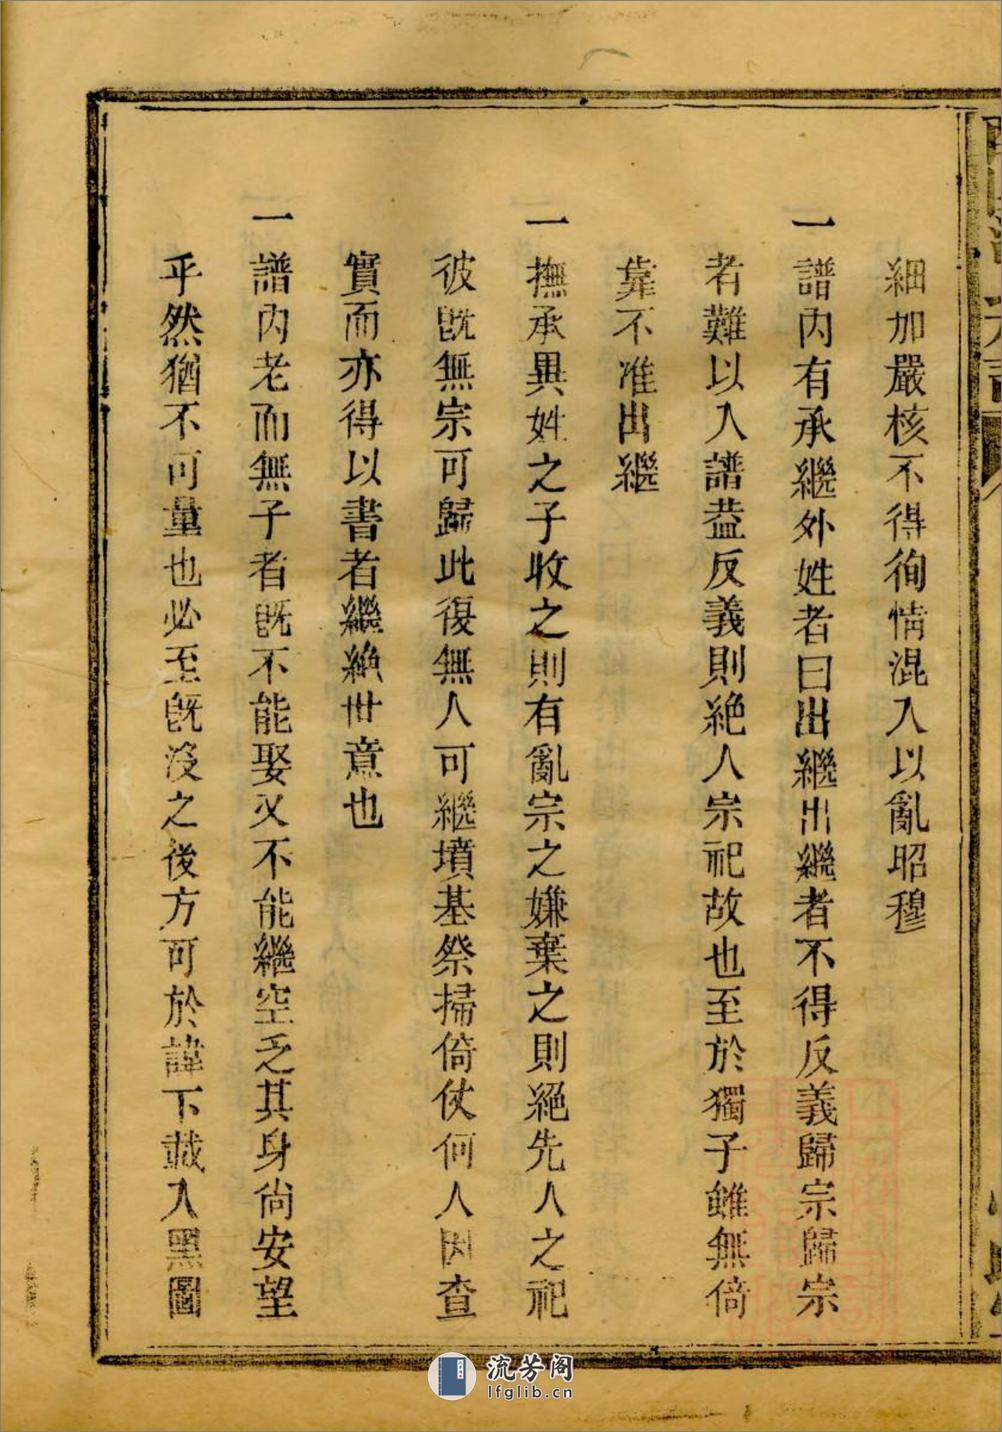 細加嚴核不得徇情混入以亂昭穆
一譜內有承繼外姓者曰出繼出繼者不得反義歸宗歸宗
者難以入譜葢反義則绝人宗祀故也至於獨子雖無倚
靠不准出繼
一撫承異姓之子收之則有亂宗之嫌棄之則絕先人之祀
彼旣無宗可歸此復無人可繼墳基祭掃倚仗何人因查
實而亦得以書者繼絶世意也
一譜內老而無子者旣不能娶又不能繼空乏其身尙安望
乎然猶不可量也必至旣沒之後方可於諱下載入黑圖
流芳阁
lfglib.cn